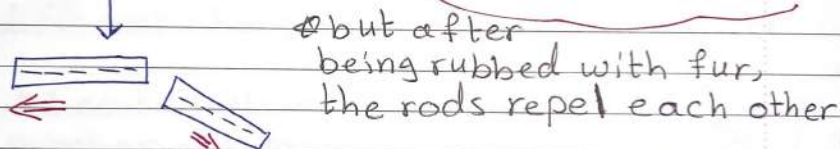 but after
being rubbed with fur,
the rods repel each other